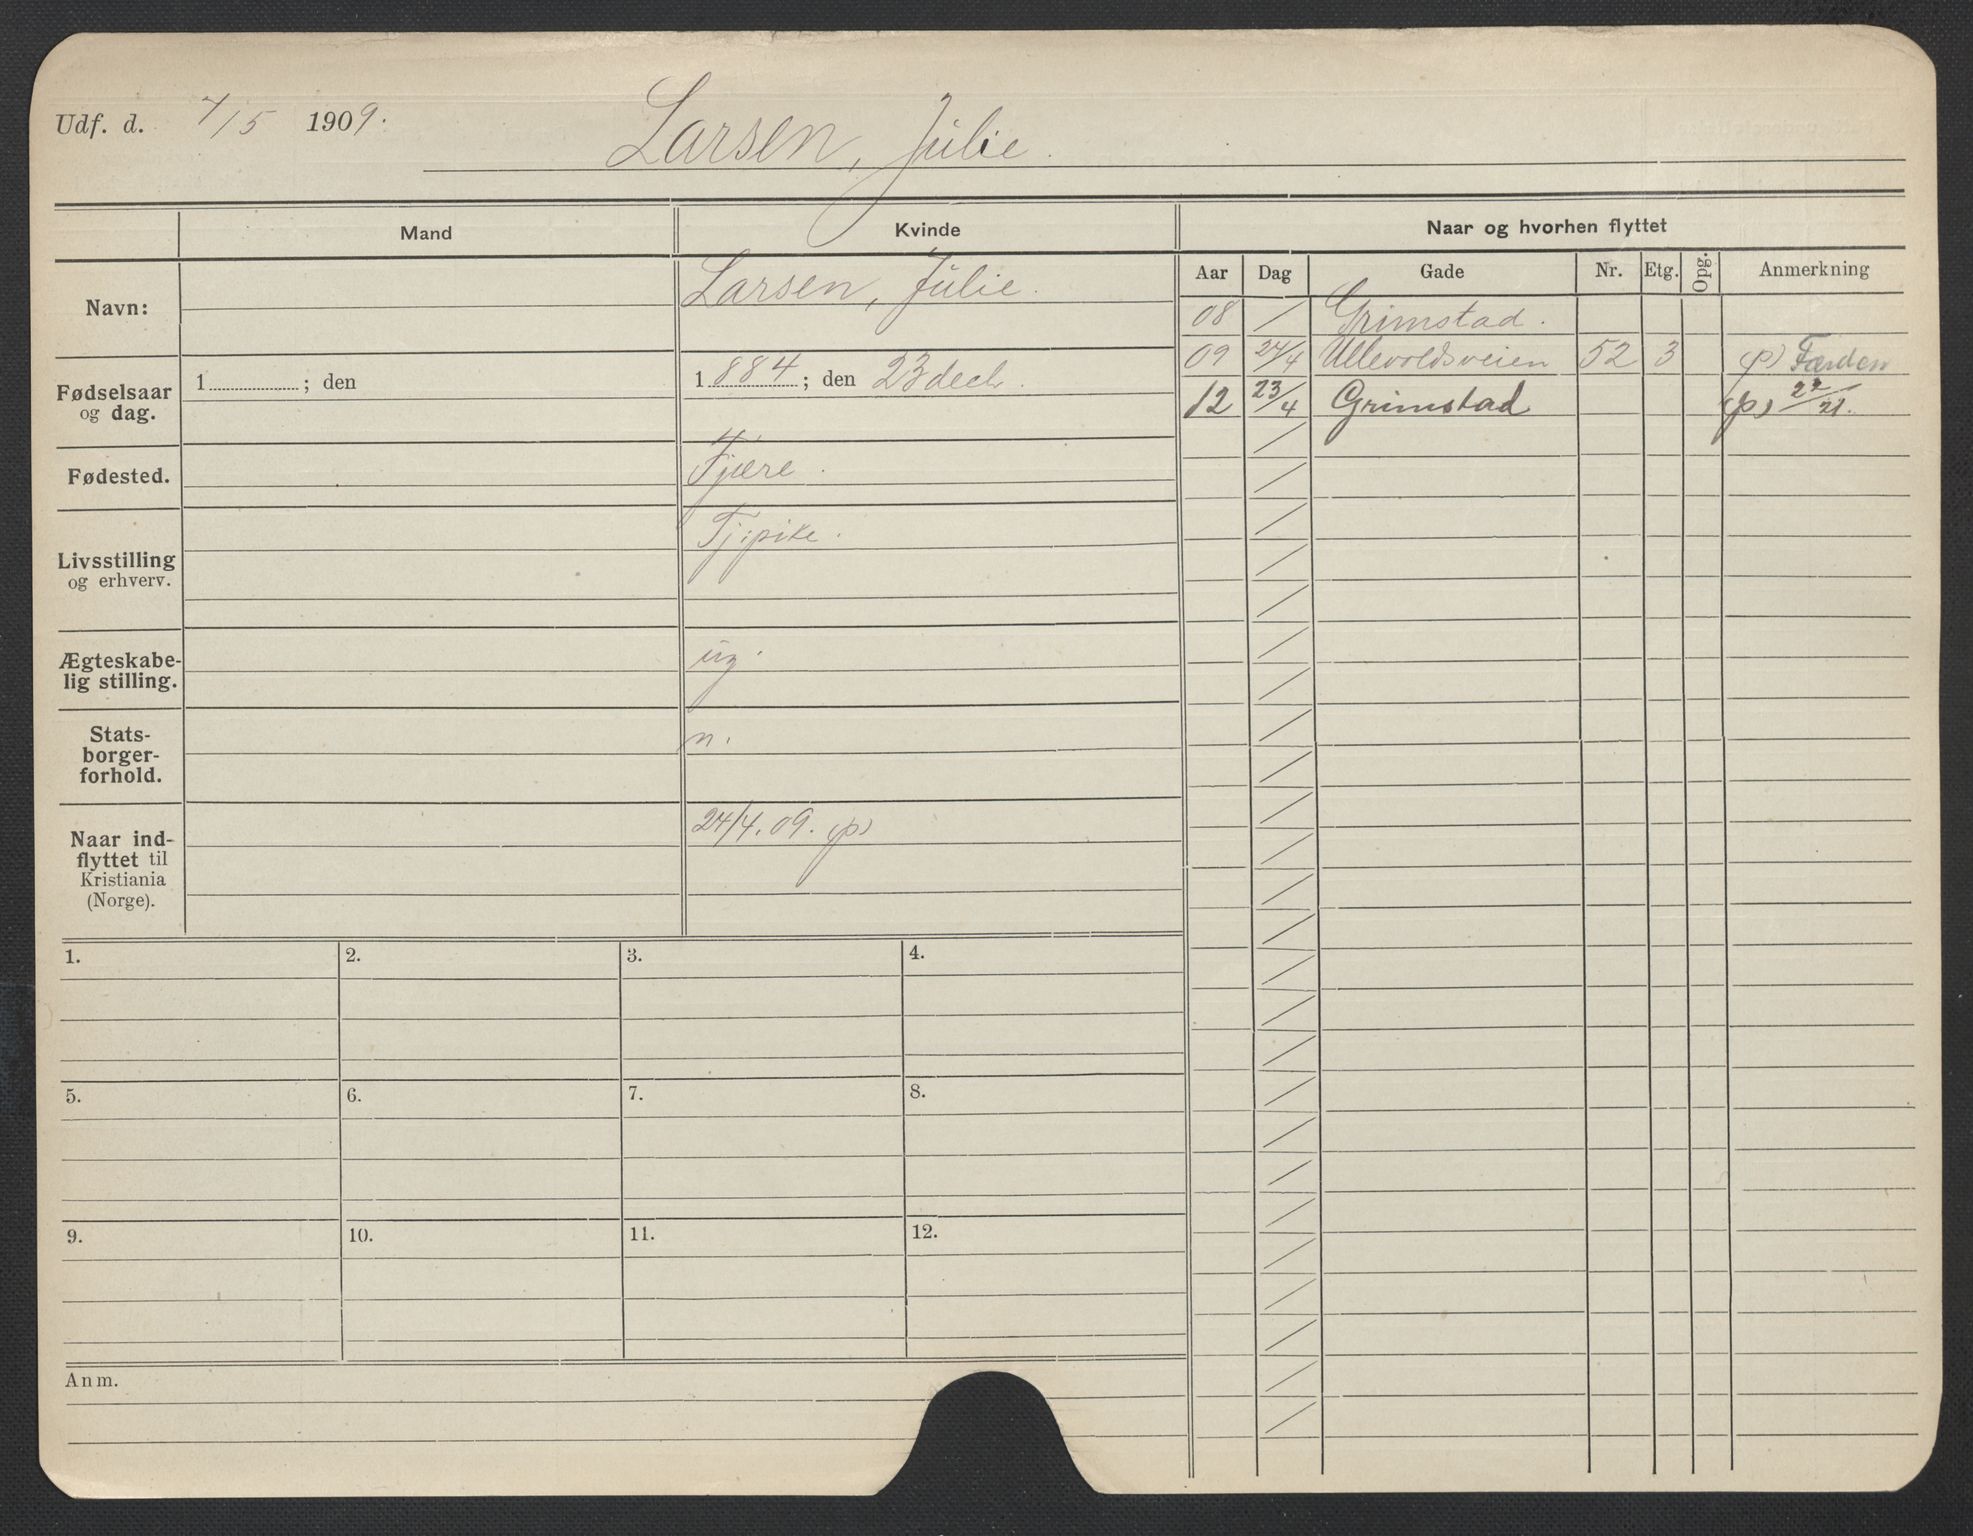 Udf. d. 7/5 1909.
Larsen, Julie.
Mand Kvinde Naar og hvorhen flyttet
Aar Dag Gade Nr. Etg. Opg. Anmerkning
Navn: Larsen, Julie.
08 / Grimstad.
09 24/4 Ullevoldsveien 52 3 (p) Færden
12 23/4 Grimstad (p)
Fødselsaar
og dag.
1 ; den
1884 ; den 23 decb.
Fødested. Fjære.
Livsstilling
og erhverv.
Tj:pike.
Ægteskabe-
lig stilling.
ug.
Stats-
borger-
forhold.
n.
Naar ind-
flyttet til
Kristiania
(Norge).
24/4.09. (p)
1. 2. 3. 4.
5. 6. 7. 8.
9. 10. 11. 12.
Anm.